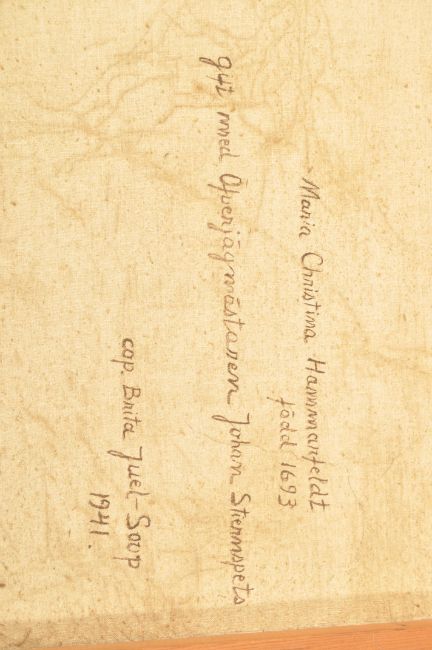 Maria Christina Hammarfeldt
född 1693
gift med Öfverjägmästaren Johan Stiernspets
cop. Brita Juel-Soop
1941.